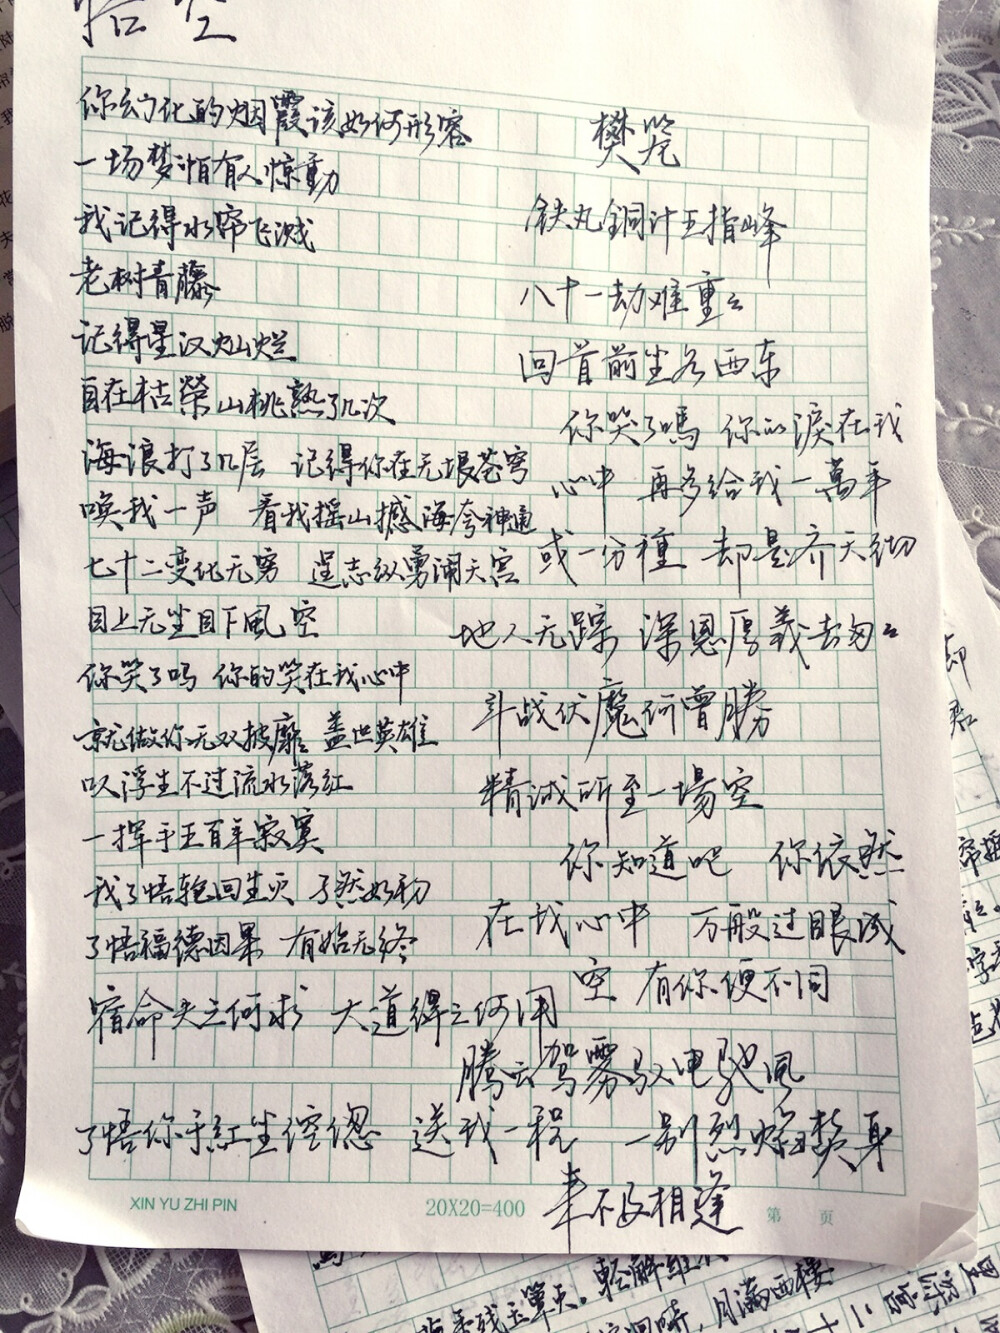 悟空
你幻化的烟霞该如何形容
一场梦怕有人惊動
我记得水帘飞溅
老树青藤
记得星汉灿烂
自在枯榮山桃熟了几次
海浪打了几层 记得你在无垠苍穹
唤我一声 看我摇山撼海夸神通
七十二变化无穷 逞志纵勇闹天宫
目上无尘目下風空
你笑了吗 你的笑在我心中
就做你无双披靡 盖世英雄
以浮生不过流水落红
一挥手五百年寂寞
我了悟轮回生灭 了然如初
了悟福德因果 有始无终
宿命失之何求 大道得之何用
了悟你于紅尘倥偬 送我一程 一别烈焰焚身
樊笼
铁丸銅汁五指峰
八十一劫难重々
回首前尘各西东
你笑了嗎 你的淚在我
心中 再多给我一萬年
或一分種 却是齐天彻
地人无踪 深恩厚義去匆々
斗战伏魔何曾勝
精诚所至一場空
你知道吧 你依然
在我心中 万般过眼成
空 有你便不同
腾云驾雾驭电驰風
来不及相逢
XIN YU ZHI PIN
20X20=400
第 页